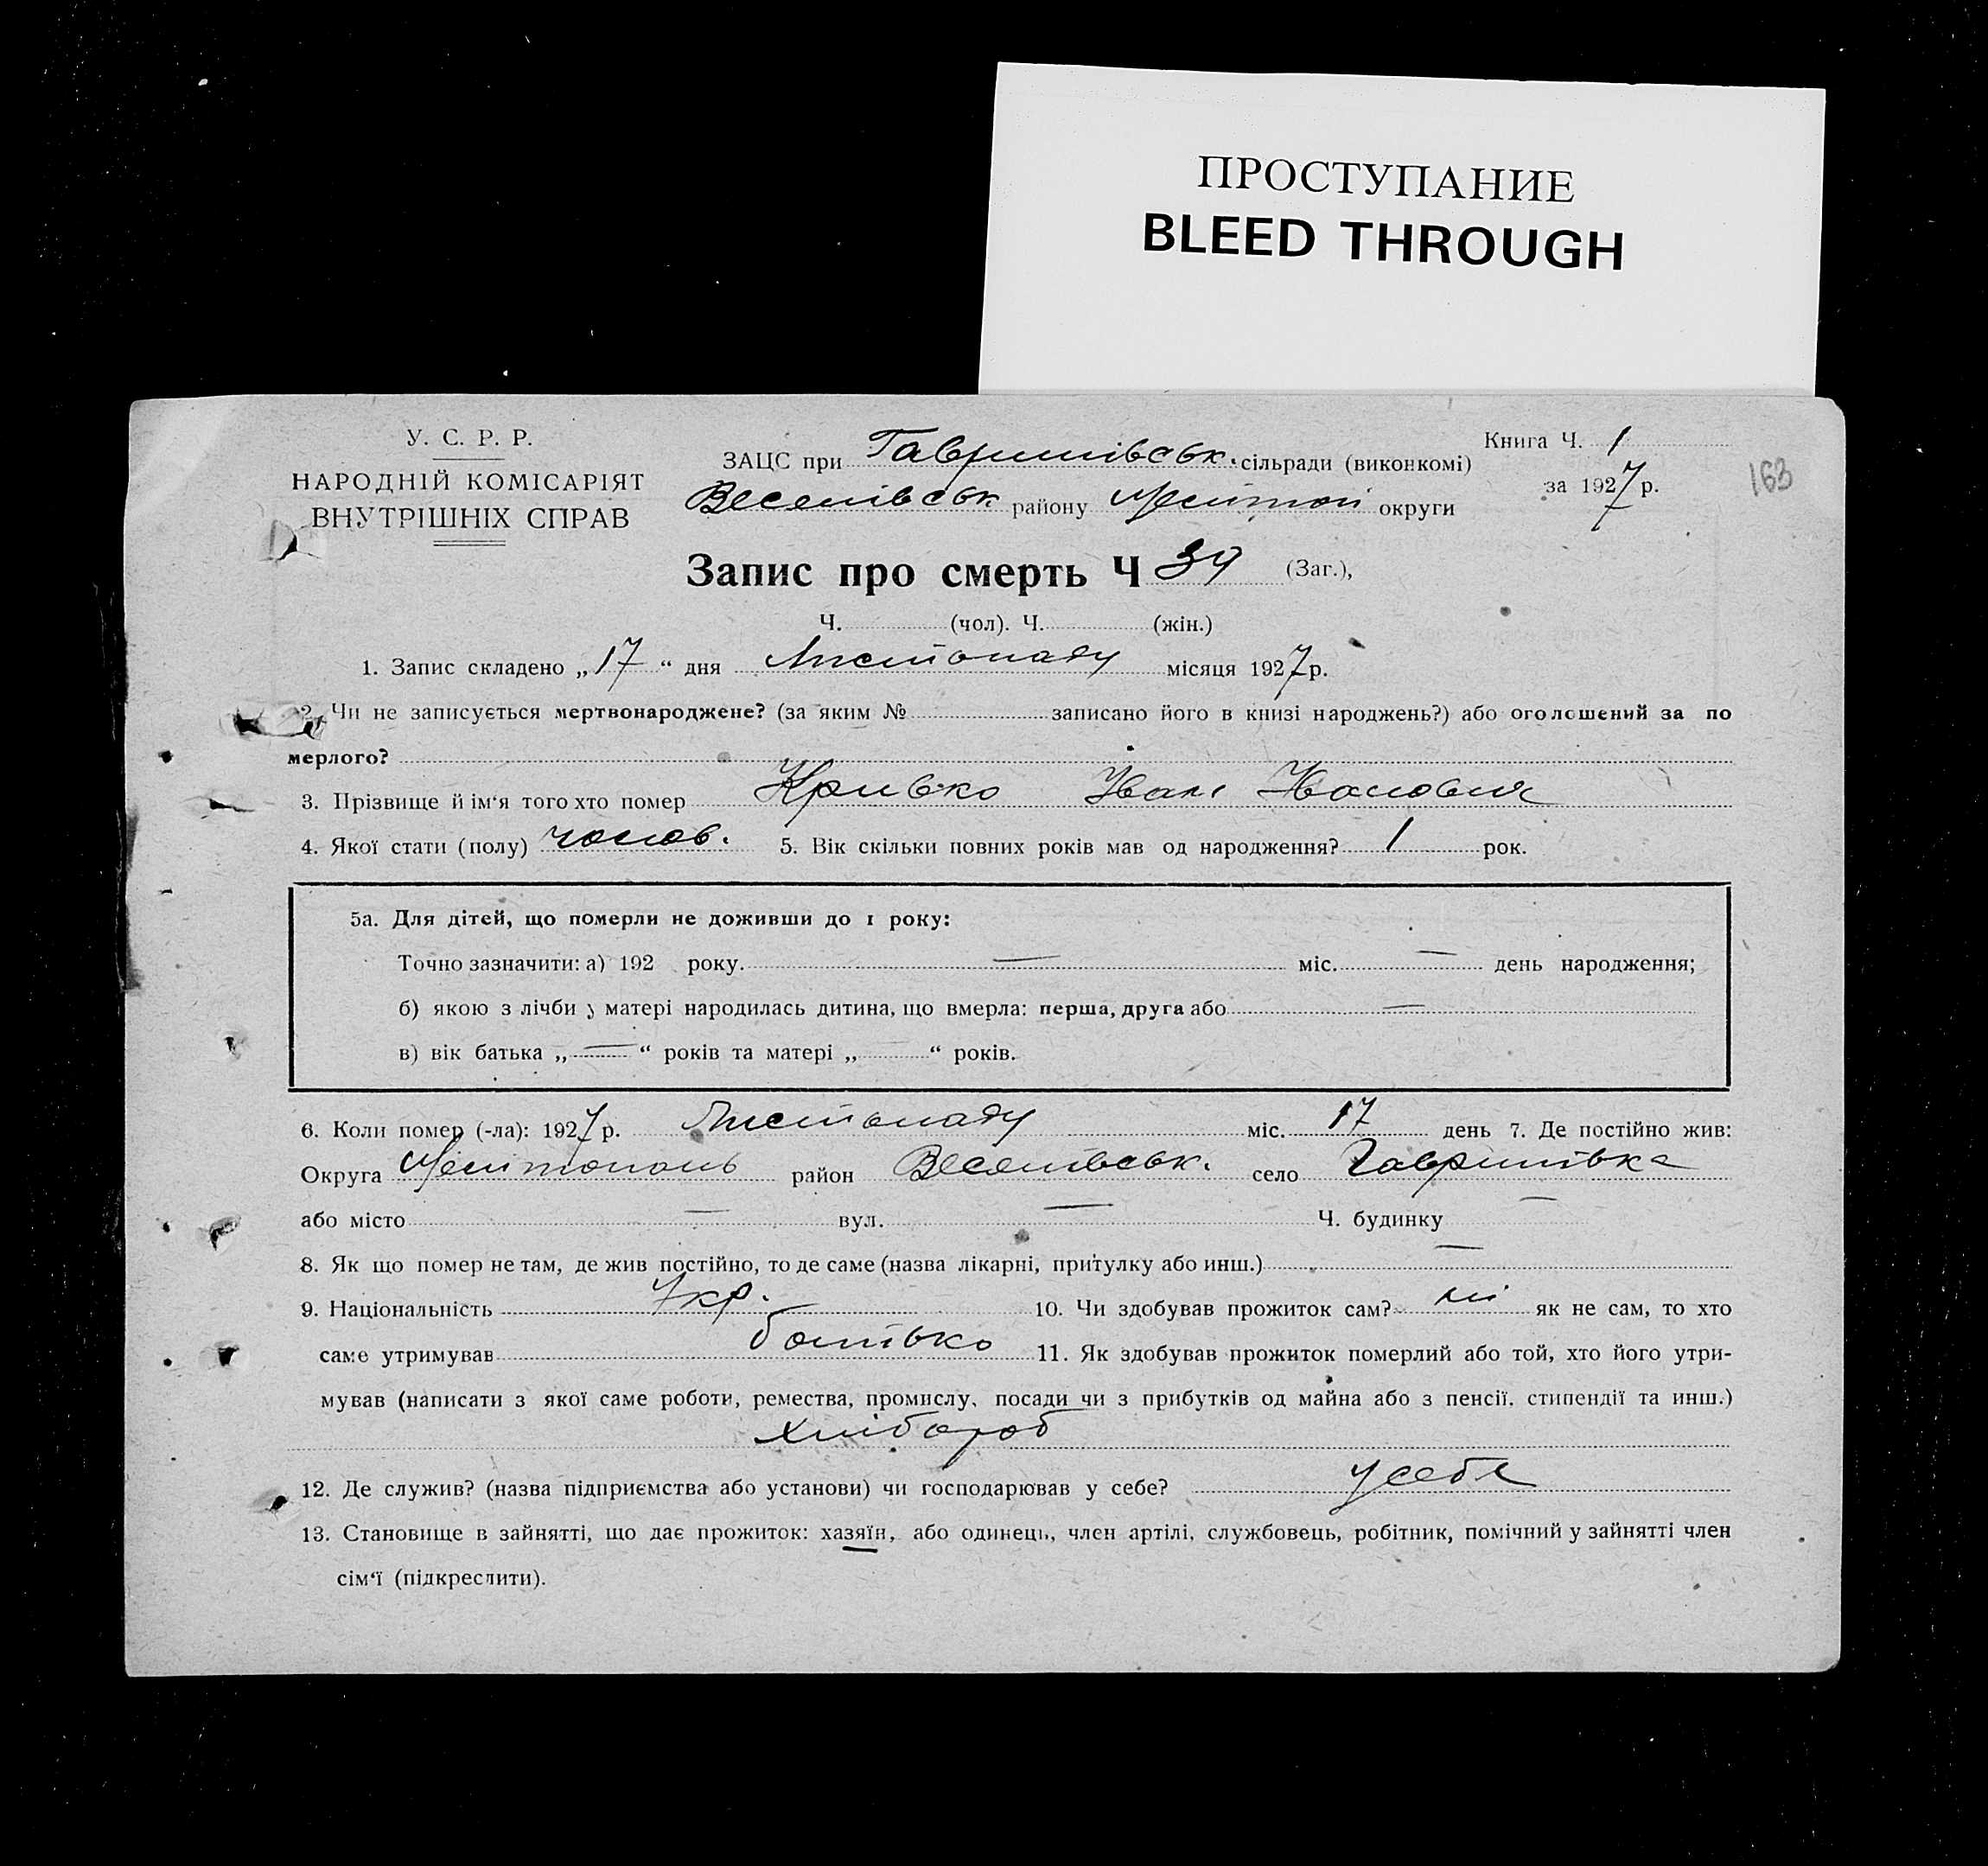 ПРОСТУПАНИЕ
BLEED THROUGH
У. С. Р. Р.
НАРОДНІЙ КОМІСАРІЯТ
ВНУТРІШНІХ СПРАВ
Книга Ч. 1
ЗАЦС при Гаврилівськ. сільради (виконкомі)
за 1927 р.
163
Веселівськ району округи
Запис про смерть Ч (Заг.),
Ч. (чол). Ч. (жін.)
1. Запис складено „17 “ дня Листопаду місяця 1927 р.
2. Чи не записується мертвонароджене? (за яким № записано його в книзі народжень?) або оголошений за по
мерлого?
3. Прізвище й ім‘я того хто помер Кривко Іван Іванович
4. Якої стати (полу) чолов. 5. Вік скільки повних років мав од народження? 1 рок.
5а. Для дітей, що померли не доживши до 1 року:
Точно зазначити: а) 192 року. — міс. — день народження;
б) якою з лічби у матері народилась дитина, що вмерла: перша, друга або —
в) вік батька „ — “ років та матері „ “ років.
6. Коли помер (-ла): 1927 р. Листопаду міс. 17 день 7. Де постійно жив:
Округа Мелітополь район Веселівськ. село Гаврилівка
або місто — вул. — Ч. будинку —
8. Як що помер не там, де жив постійно, то де саме (назва лікарні, притулку або инш.) —
9. Національність Укр. 10. Чи здобував прожиток сам? ні як не сам, то хто
саме утримував батько 11. Як здобував прожиток померлий або той, хто його утри-
мував (написати з якої саме роботи, ремества, промислу, посади чи з прибутків од майна або з пенсії, стипендії та инш.)
хлібороб
12. Де служив? (назва підприємства або установи) чи господарював у себе? у себе
13. Становище в зайнятті, що дає прожиток: хазяїн, або одинець, член артілі, службовець, робітник, помічний у зайнятті член
сім‘ї (підкреслити).